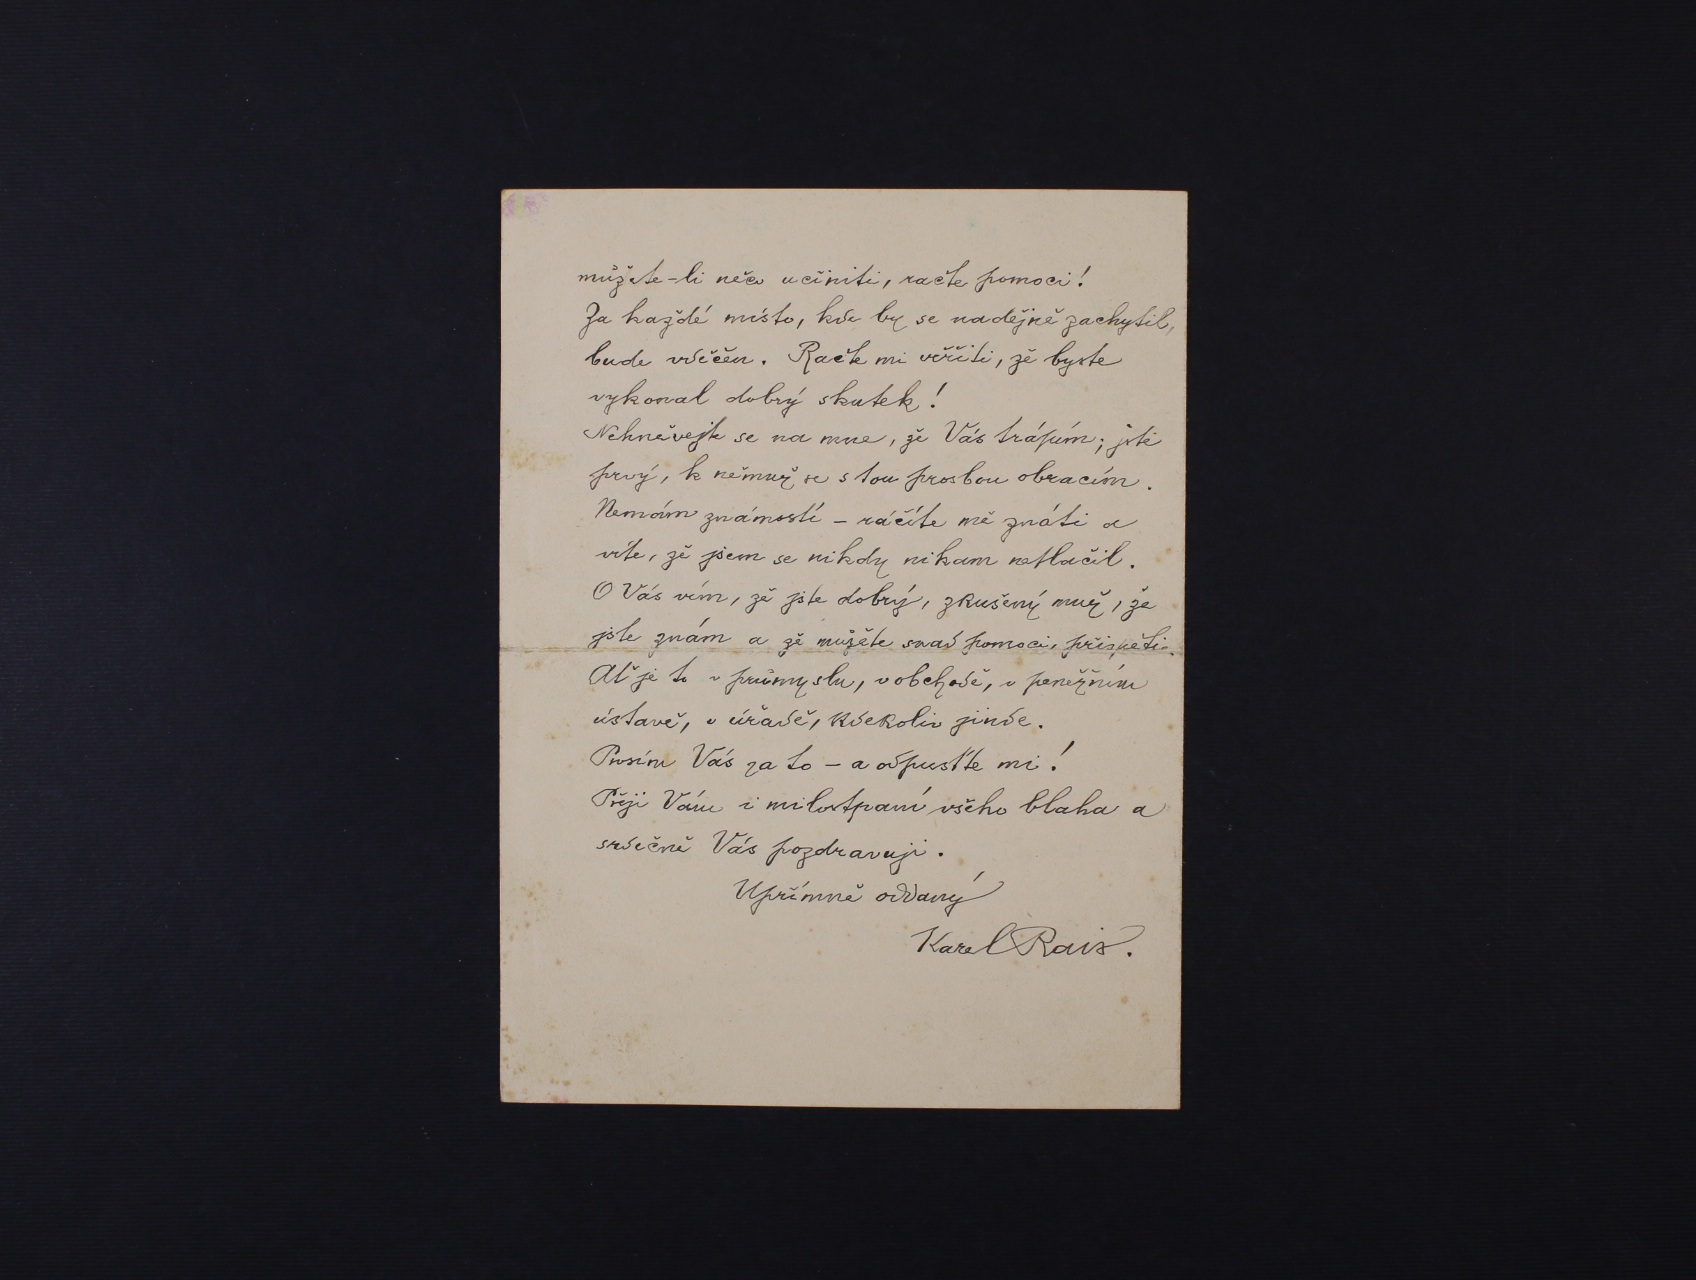 můžete-li něco učiniti, račte pomoci!
Za každé místo, kde by se nadějně zachytil,
bude vděčen. Račte mi věřiti, že byste
vykonal dobrý skutek!
Nehněvejte se na mne, že Vás trápím; jste
prvý, k němuž se s tou prosbou obracím.
Nemám známostí – ráčíte mě znáti a
víte, že jsem se nikdy nikam netlačil.
O Vás vím, že jste dobrý, zkušený muž, že
jste znám a že můžete snad pomoci, přispěti.
Ať je to v průmyslu, v obchodě, v peněžním
ústavě, v úřadě, kdekoliv jinde.
Prosím Vás za to – a odpusťte mi!
Přeji Vám i milostpaní všeho blaha a
srdečně Vás pozdravuji.
Upřímně oddaný
Karel Rais.